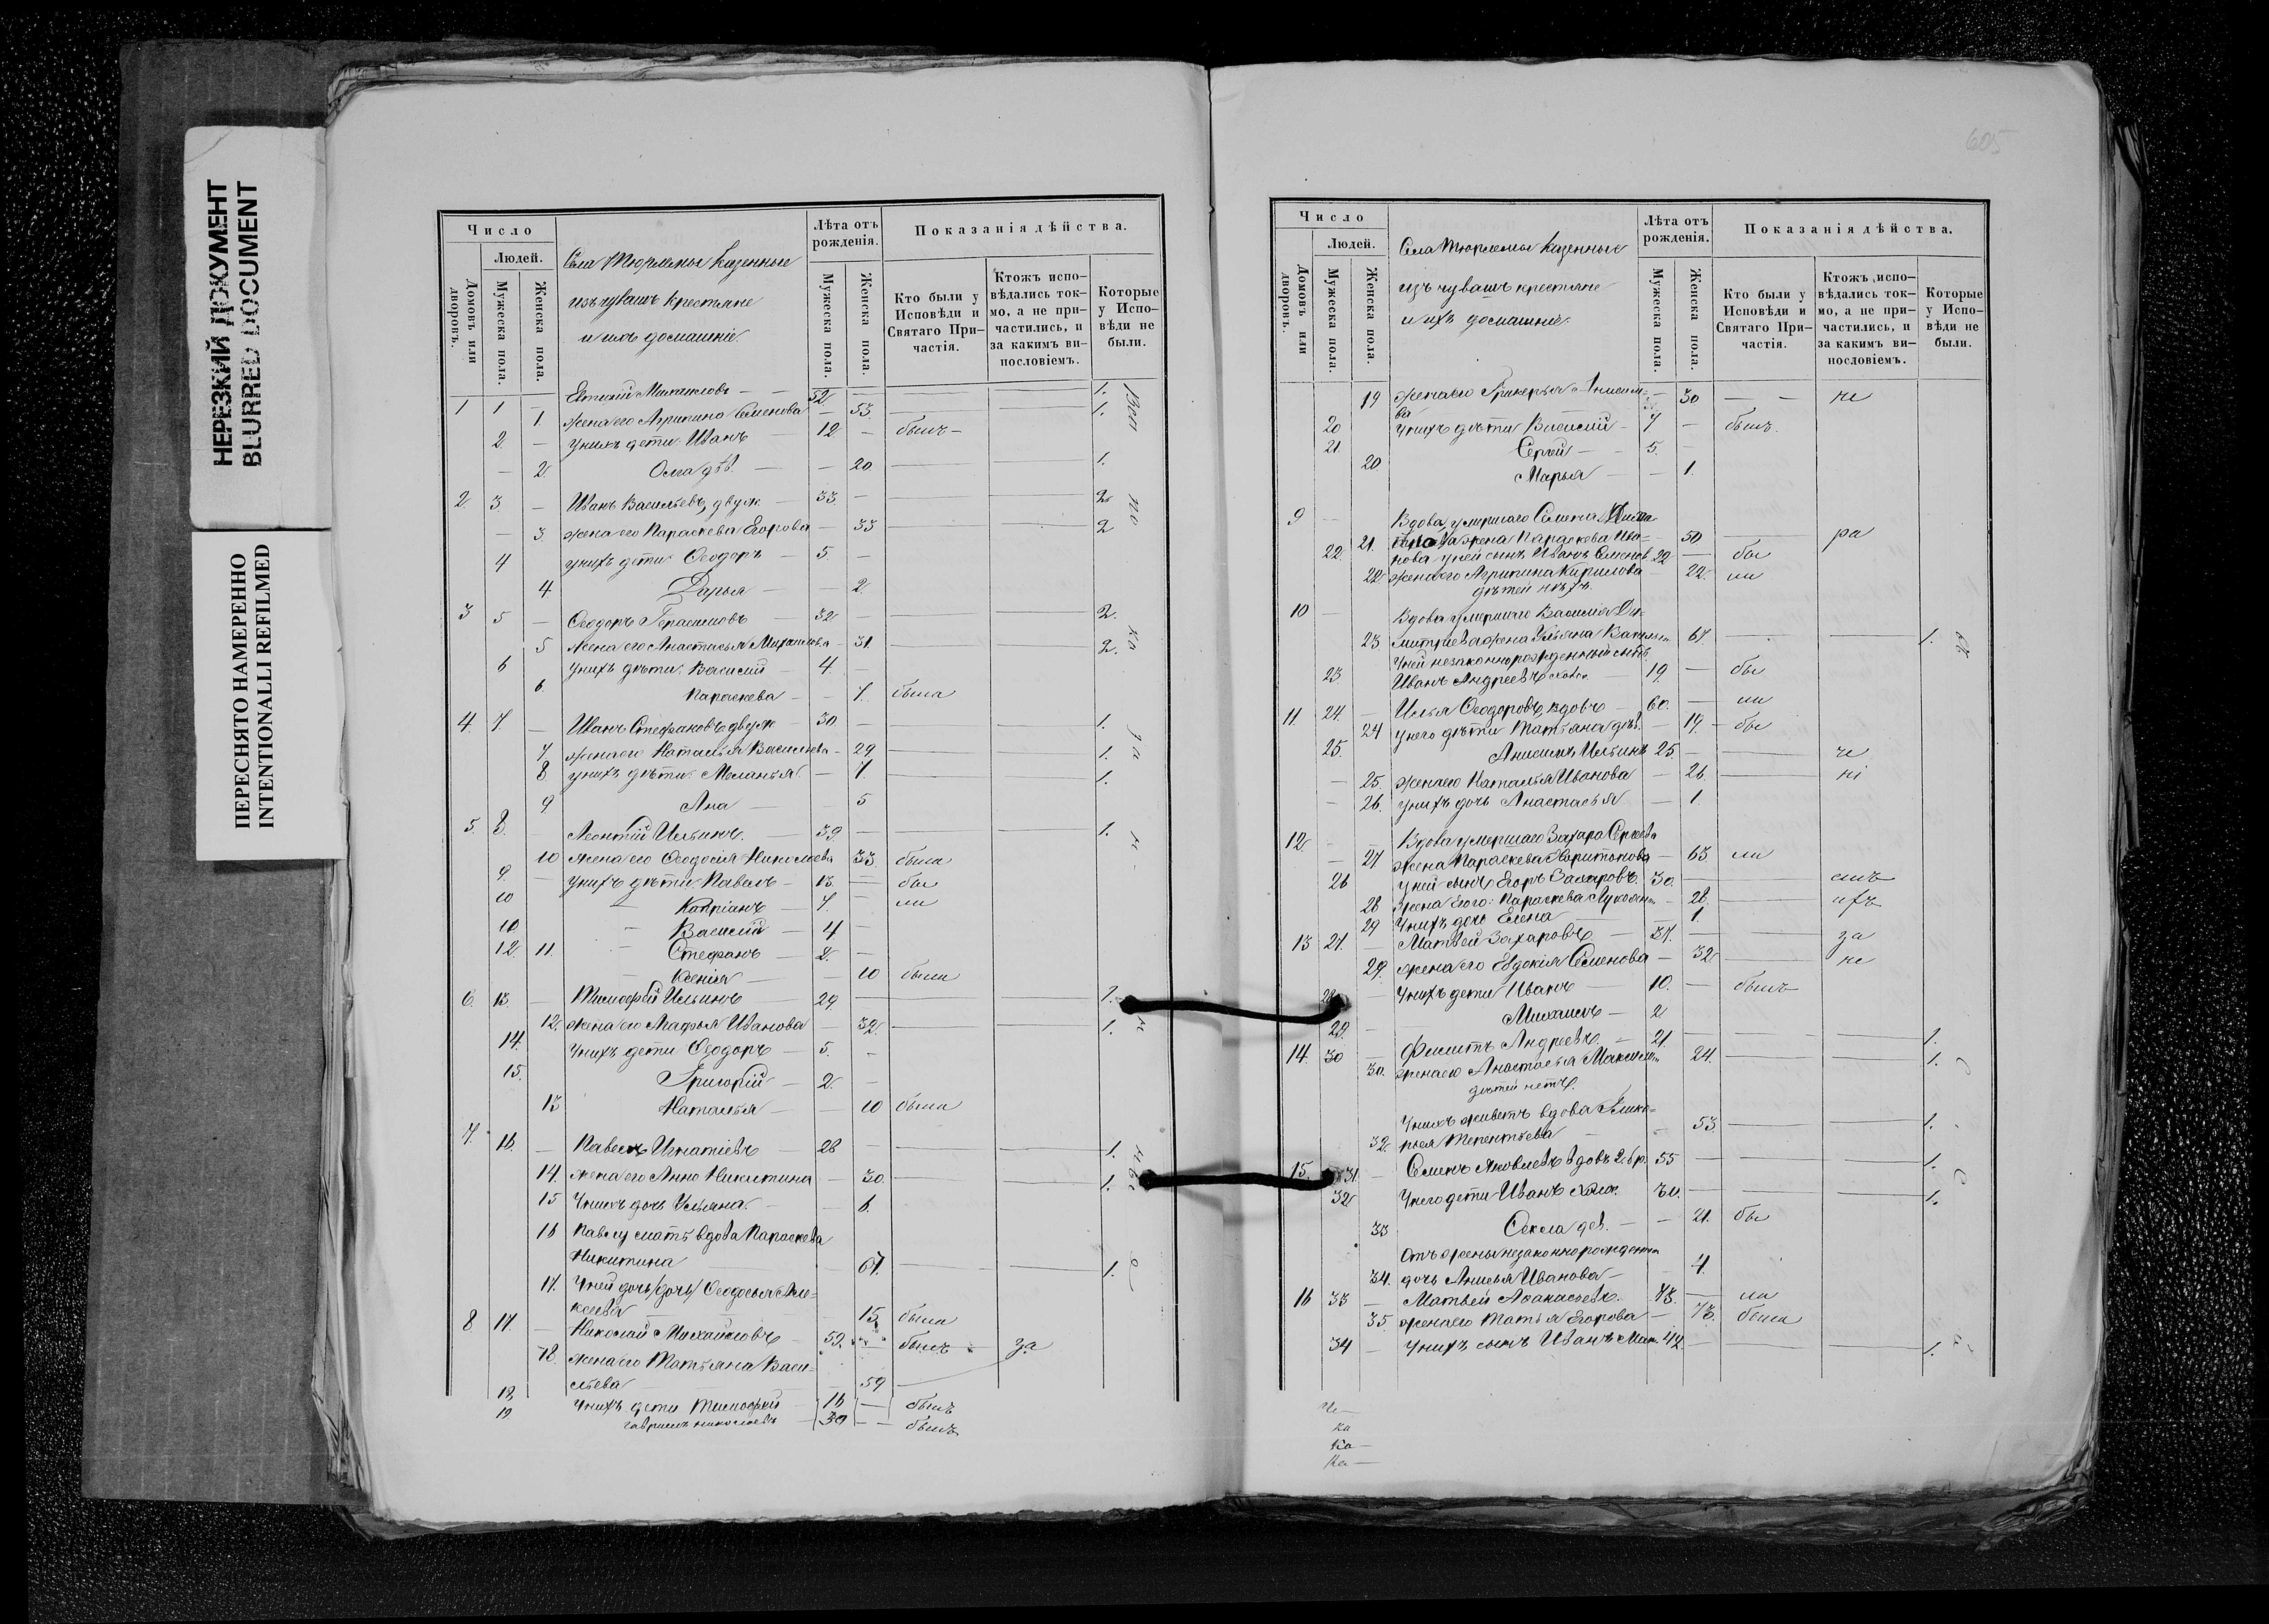 НЕРЕЗКИЙ ДОКУМЕНТ
BLURRED DOCUMENT
ПЕРЕСНЯТО НАМЕРЕННО
INTENTIONALLI REFILMED
Число
Людей.
Домовъ или дворовъ.
Мужеска пола.
Женска пола.
Села Тюрлемы казенные
изъ чувашъ крестьяне
и ихъ домашніе.
Лѣта отъ рожденія.
Мужеска пола.
Женска пола.
Показанія дѣйства.
Кто были у Исповѣди и Святаго При-частія.
Ктожъ испо-вѣдались ток-мо, а не при-частились, и за какимъ ви-нословіемъ.
Которые у Испо-вѣди не были.
1 1 — 52 — 1.
1. жена его Агрипина Семенова — 53 1.
2. — у нихъ дети Иванъ 12 — былъ
— 2. дѣв. — 20 1.
2. 3. — Иванъ Васильевъ двуж. 33 — 2
— 3. жена его Параскева Егорова — 33 2
4 у нихъ дети Ѳеодоръ 5 —
4. Дарья — 2.
3 5 — Ѳеодоръ Герасимовъ 32 — 2.
5 жена его Анастасья Михаилова — 31 2.
6 у нихъ дѣти Василий 4. —
6. Параскева — 7. была
4. 7. — Иванъ Стефановъ двуж 30 — 1.
7 жена его Наталья Васильева — 29 1.
8 у нихъ дѣти Меланья — 7. 1.
9. Ана — 5
5. 8. — Леонтій Ильинъ. 39 — 1.
10 жена его Ѳеодосія Николаева 33 была
9. — у нихъ дѣти Павелъ 13. — бы
10 Капріанъ 7. — ли
10 Василій 4 —
12. 11. Стефанъ 2. —
Ксенія — 10 была
6. 13. — Тимофей Ильинъ 29. — 1.
12. жена его Марья Иванова — 32 1.
14. у нихъ дети Ѳеодоръ 5. —
15. Григорій 2. —
13 Наталья — 10 была
7. 16. — Павелъ Игнатіевъ 28 — 1.
14. жена его Анна Никитина — 30. 1.
15 У нихъ дочь Ульяна. — 6.
16 Павлу мать вдова Параскева
Никитина — 67. 1.
17. У ней дочь /дочь/ Ѳеодосья Але-
ксеева — 15. была
8 17. — Николай Михайловъ 52. былъ за
18. жена его Татьяна Васи-
льева — 59
18. У нихъ дети Тимофей 16 — былъ
19 Гаврилъ Николаевъ 30 — былъ
605
Число
Людей.
Домовъ или дворовъ.
Мужеска пола.
Женска пола.
Села Тюрлемы казенные
изъ чувашъ крестьяне
и ихъ домашніе.
Лѣта отъ рожденія.
Мужеска пола.
Женска пола.
Показанія дѣйства.
Кто были у Исповѣди и Святаго При-частія.
Ктожъ испо-вѣдались ток-мо, а не при-частились, и за какимъ ви-нословіемъ.
Которые у Испо-вѣди не были.
19 жена его Анисимо-
ва — 30 — — не
20 У нихъ дѣти Василій 7 — былъ.
21. Сергей 5. —
20 Марья — 1.
9 — Вдова умершаго Семена
21. жена Параскева Ива- 50 ра
22. нова у ней сынъ Иванъ Семенов 22 — бы
22 жена его Агрипина Кирилова 22. ли
дѣтей нѣтъ.
10 — Вдова умершаго Василія Ди-
23. митріева жена Ульяна — 67. 1.
У ней незаконнорожденный сынъ
23 Иванъ Андреевъ 19. — бы
11. 24. — Илья Ѳеодоровъ вдовъ 60. — ли
24 у него дѣти Татьяна дѣв. — 19. бы
25. Анисимъ Ильинъ 25 — че
— 25. жена его Наталья Иванова — 26 ні
— 26. у нихъ дочь Анастасья — 1
12 — — Вдова умершаго Захара Сергеева
— 27 жена Параскева Харитонова — 63 ли
26 у ней сынъ Егоръ Захаровъ. 30. емъ
28 жена его: Параскева 28. ихъ
29 У нихъ дочь Елена — 1
13 27. — Матвей Захаровъ 37. — за
29. жена его Евдокія Семенова — 32 не
28 — У нихъ дети Иванъ 10. — былъ
29 — Михаилъ 2
14. 30 — Филипъ Андреевъ. 21 — 1.
30. жена его Анастасья 24. 1.
дѣтей нетъ.
У нихъ живетъ вдова Глике-
32. рья Терентьева — 53 1.
15. 31. — Семенъ Яковлевъ вдовъ 2 бр. 55 — 1.
32 У него дети Иванъ 30. — 1.
33 Ѳекла дев. — 21. бы
Отъ жены незаконнорожденная
34. дочь Анисья Иванова — 4.
16 33 — Матвей Аѳанасьевъ. 73. — ли
35. жена его Татьяна Егорова — 73. была
34 — У нихъ сынъ Иванъ Мат. 42. — 1.
ка
ка